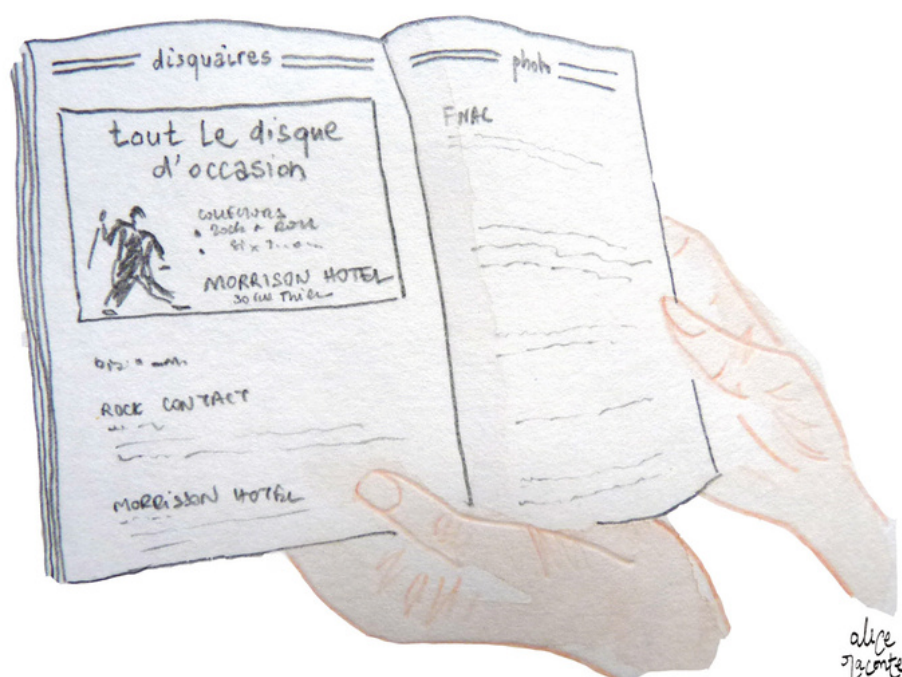 disquaires
tout le disque
d'occasion
COLLECTORS
ROCK n ROLL
MORRISON HOTEL
30 rue Thiers
ROCK CONTACT
MORRISSON HOTEL
photo
FNAC
alice
raconte